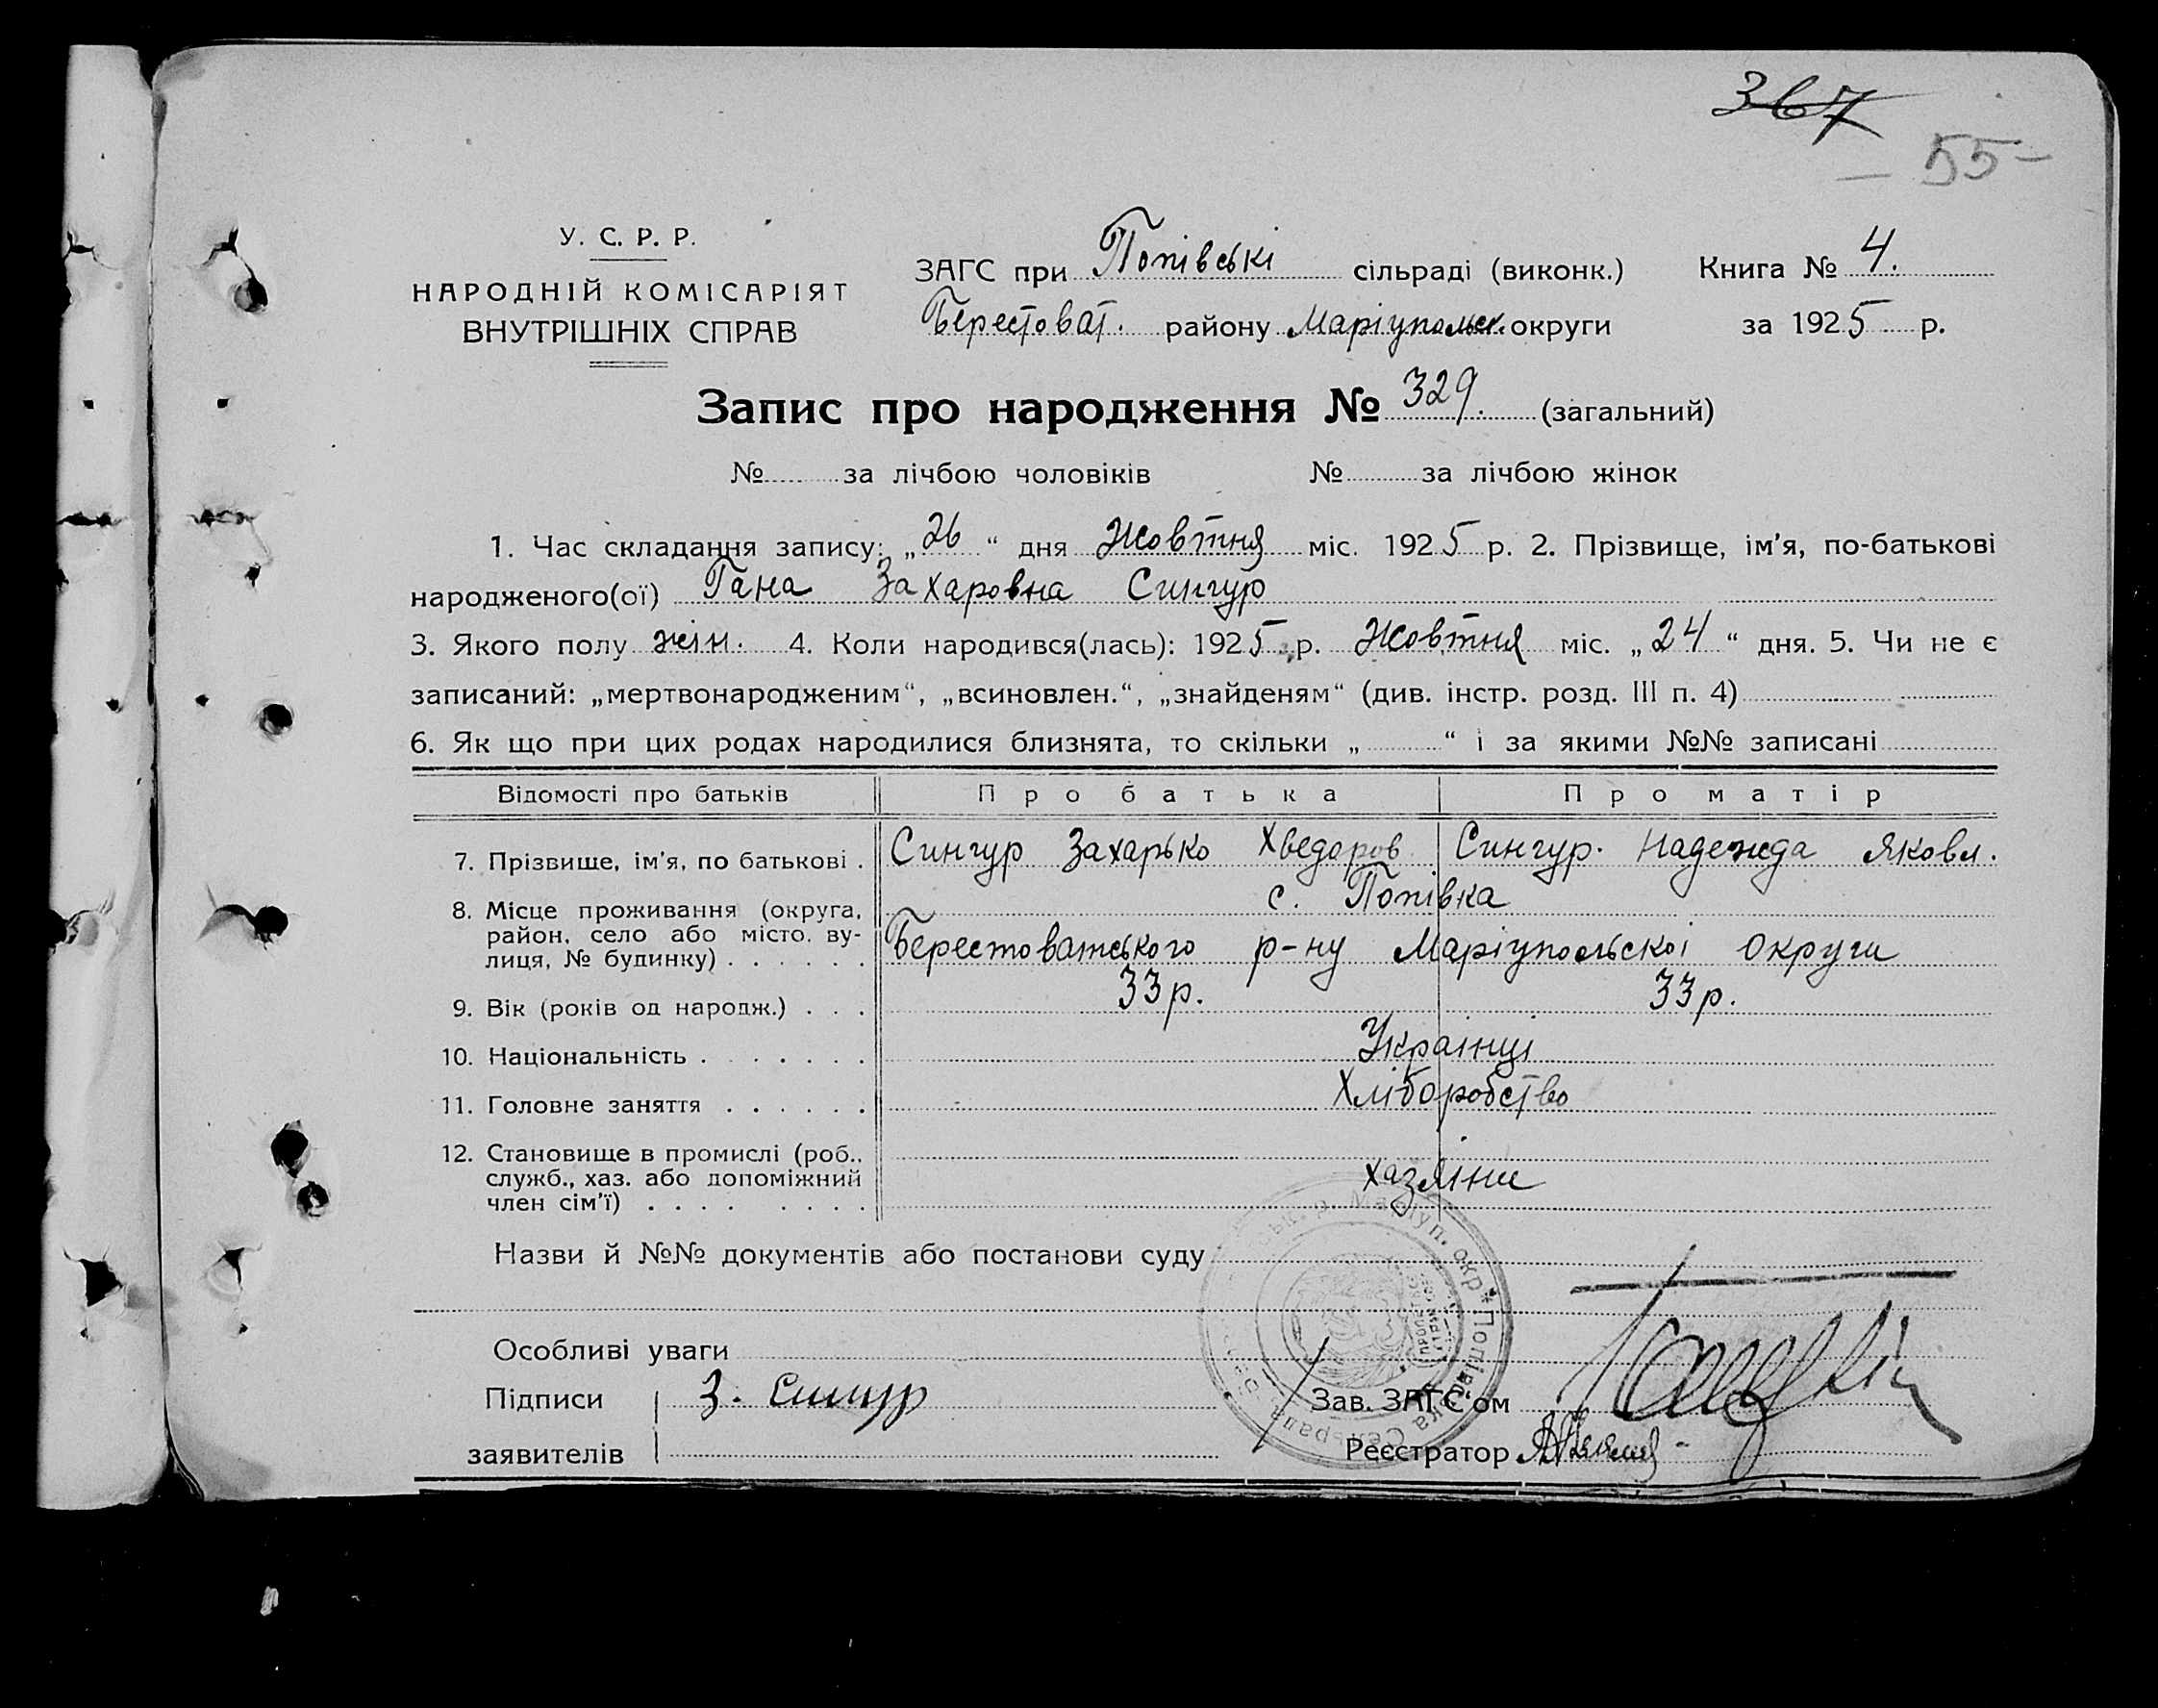 367
- 55 -
У. С. Р. Р.
НАРОДНІЙ КОМІСАРІЯТ
ВНУТРІШНІХ СПРАВ
ЗАГС при Попівські сільраді (виконк.) Книга № 4.
Берестоват. району Маріупольск. округи за 1925 р.
Запис про народження № 329. (загальний)
№ за лічбою чоловіків № за лічбою жінок
1. Час складання запису: „26“ дня Жовтня міс. 1925 р. 2. Прізвище, ім’я, по-батькові
народженого(ої) Гана Захаровна Сингур
3. Якого полу жін. 4. Коли народився(лась): 1925 р. Жовтня міс. „24“ дня. 5. Чи не є
записаний: „мертвонародженим“, „всиновлен.“, „знайденям“ (див. інстр. розд. III п. 4)
6. Як що при цих родах народилися близнята, то скільки „ “ і за якими №№ записані
Відомості про батьків Про батька Про матір
7. Прізвище, ім’я, по батькові . Сингур Захарько Хведоров Сингур. Надежда Яковл.
8. Місце проживання (округа, с. Попівка
район, село або місто, ву-
лиця, № будинку) . . . . . . Берестоватського р-ну Маріупольскоі округи
9. Вік (років од народж.) . . . 33 р. 33 р.
10. Національність . . . . . . . Украінці
11. Головне заняття . . . . . . Хліборобство
12. Становище в промислі (роб.,
служб., хаз. або допоміжний хазяіни
член сім’ї) . . . . . . . .
Назви й №№ документів або постанови суду
Особливі уваги
Підписи З. Сингур Зав. ЗАГС‘ом
заявителів Реєстратор
Маріуп. окр. * Попівська Сельрада